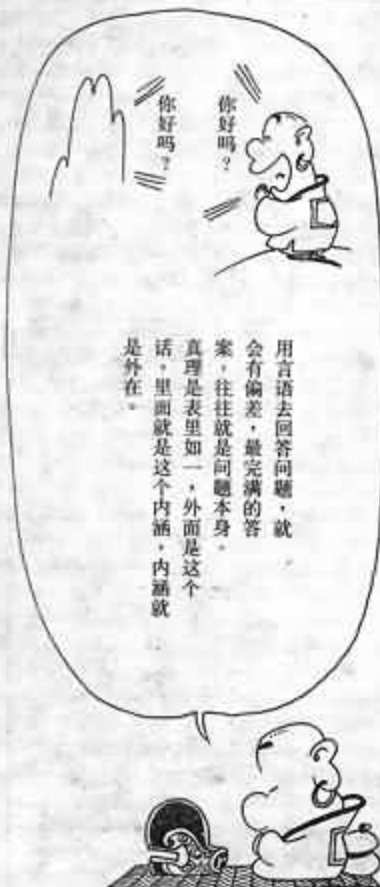 你好吗?
你好吗?
用言语去回答问题,就
会有偏差,最完满的答
案,往往就是问题本身。
真理是表里如一,外面是这个
话,里面就是这个内涵,内涵就
是外在。